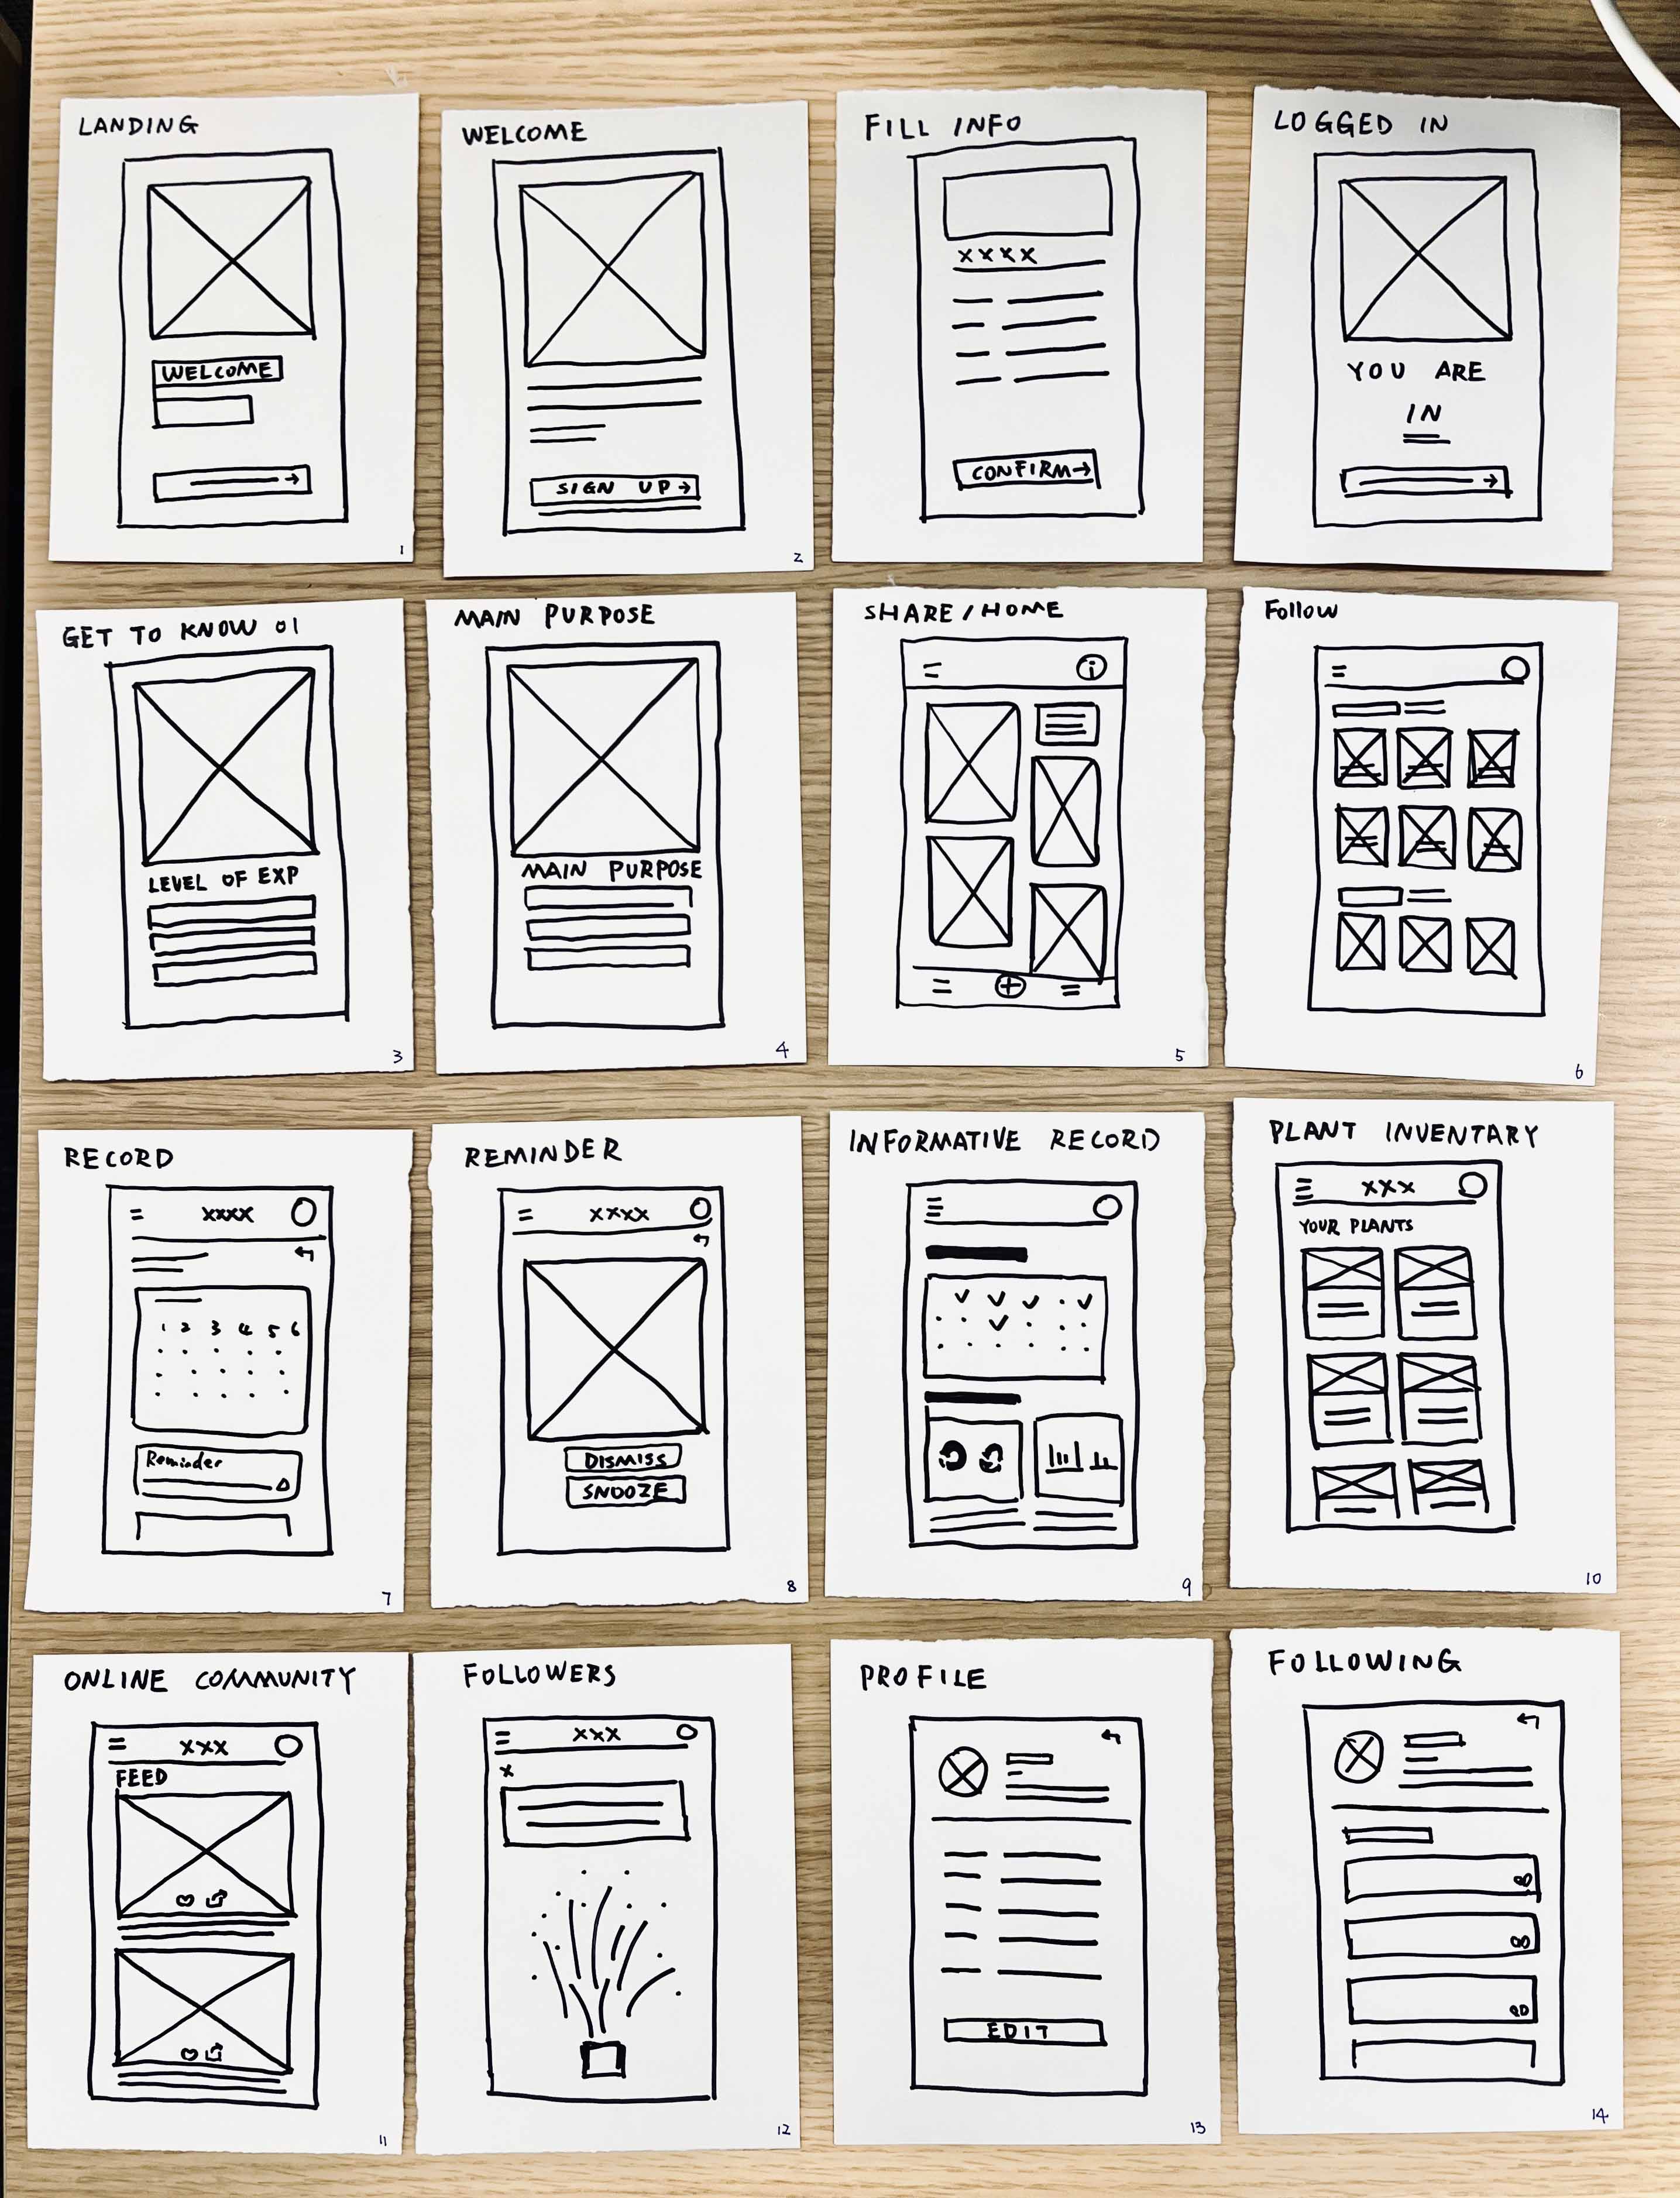 LANDING
WELCOME
1
WELCOME
SIGN UP→
2
FILL INFO
XXXX
CONFIRM→
LOGGED IN
YOU ARE
IN
GET TO KNOW 01
LEVEL OF EXP
3
MAIN PURPOSE
MAIN PURPOSE
4
SHARE/HOME
i
5
Follow
6
RECORD
XXXX
1 2 3 4 5 6
Reminder
7
REMINDER
XXXX
DISMISS
SNOOZE
8
INFORMATIVE RECORD
9
PLANT INVENTARY
XXX
YOUR PLANTS
10
ONLINE COMMUNITY
XXX
FEED
11
FOLLOWERS
XXX
X
12
PROFILE
EDIT
13
FOLLOWING
14